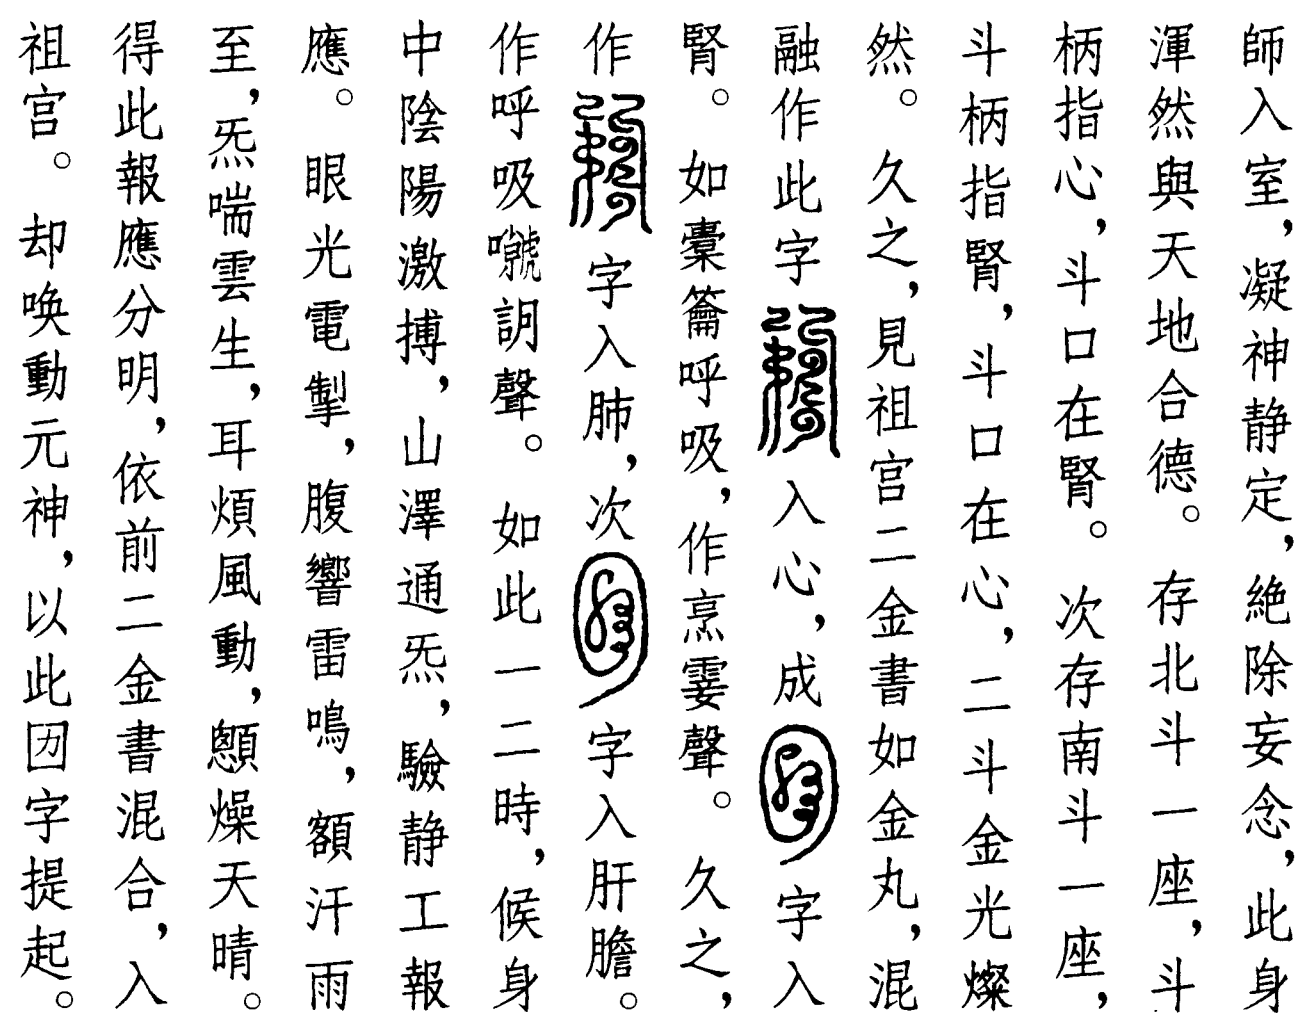 師入室，凝神静定，絶除妄念，此身
渾然與天地合德。存北斗一座，斗
柄指心，斗口在腎。次存南斗一座，
斗柄指腎，斗口在心，二斗金光燦
然。久之，見祖宫二金書如金丸，混
融作此字入心，成字入
腎。如橐籥呼吸，作烹霎聲。久之，
作字入肺，次字入肝膽。
作呼吸嚱訶聲。如此一二時，候身
中陰陽激搏，山澤通炁，驗静工報
應。眼光電掣，腹響雷鳴，額汗雨
至，炁喘雲生，耳煩風動，顖燥天晴。
得此報應分明，依前二金書混合，入
祖宫。却唤動元神，以此囨字提起。